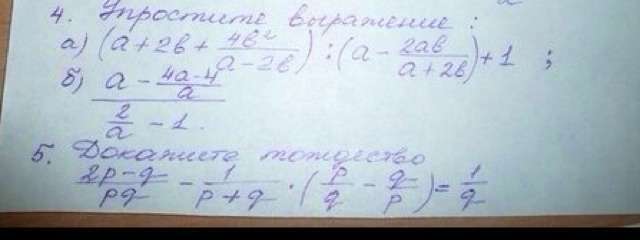 4. Упростите выражение :
а) (a + 2b + 4b²/(a - 2b)) : (a - 2ab/(a + 2b)) + 1 ;
б) (a - (4a - 4)/a)/(2/a - 1).
5. Докажите тождество
(2p - q)/(pq) - 1/(p + q) · (p/q - q/p) = 1/q